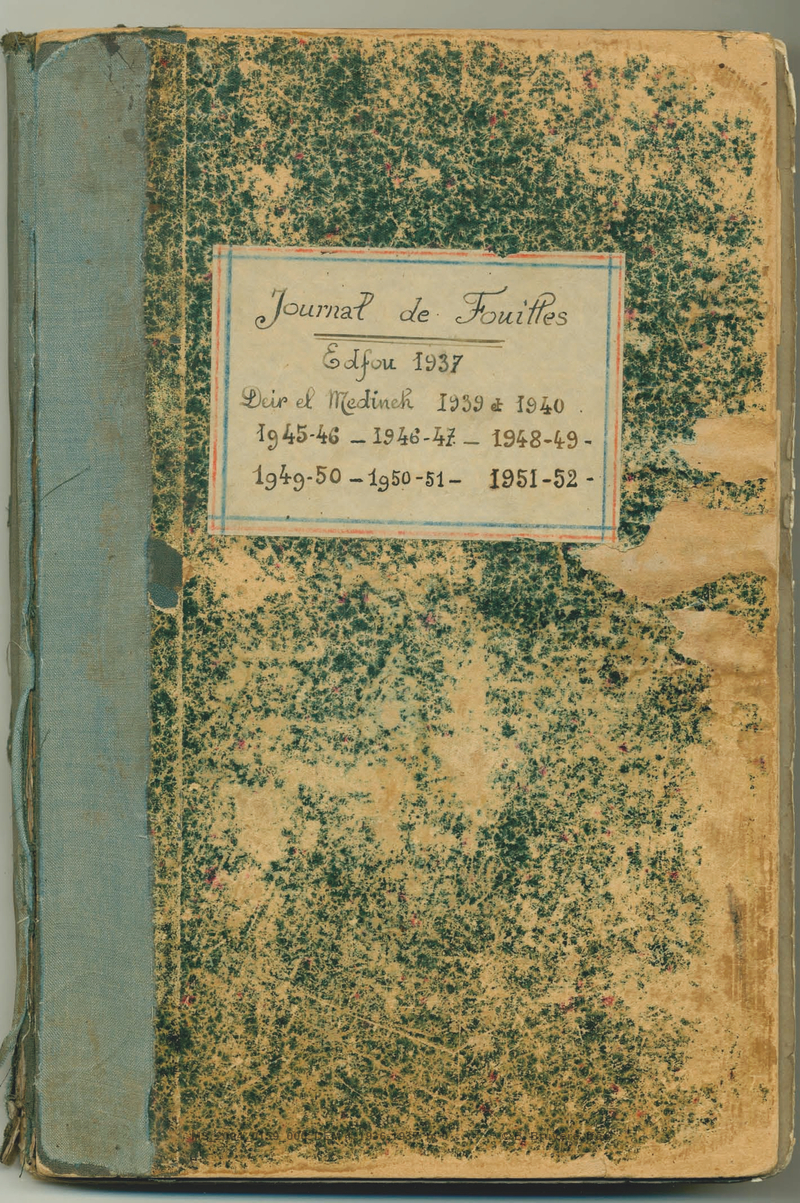 Journal de Fouilles
Edfou 1937
Deir el Medineh 1939 et 1940.
1945-46 – 1946-47 – 1948-49 -
1949-50 – 1950-51 – 1951-52 -